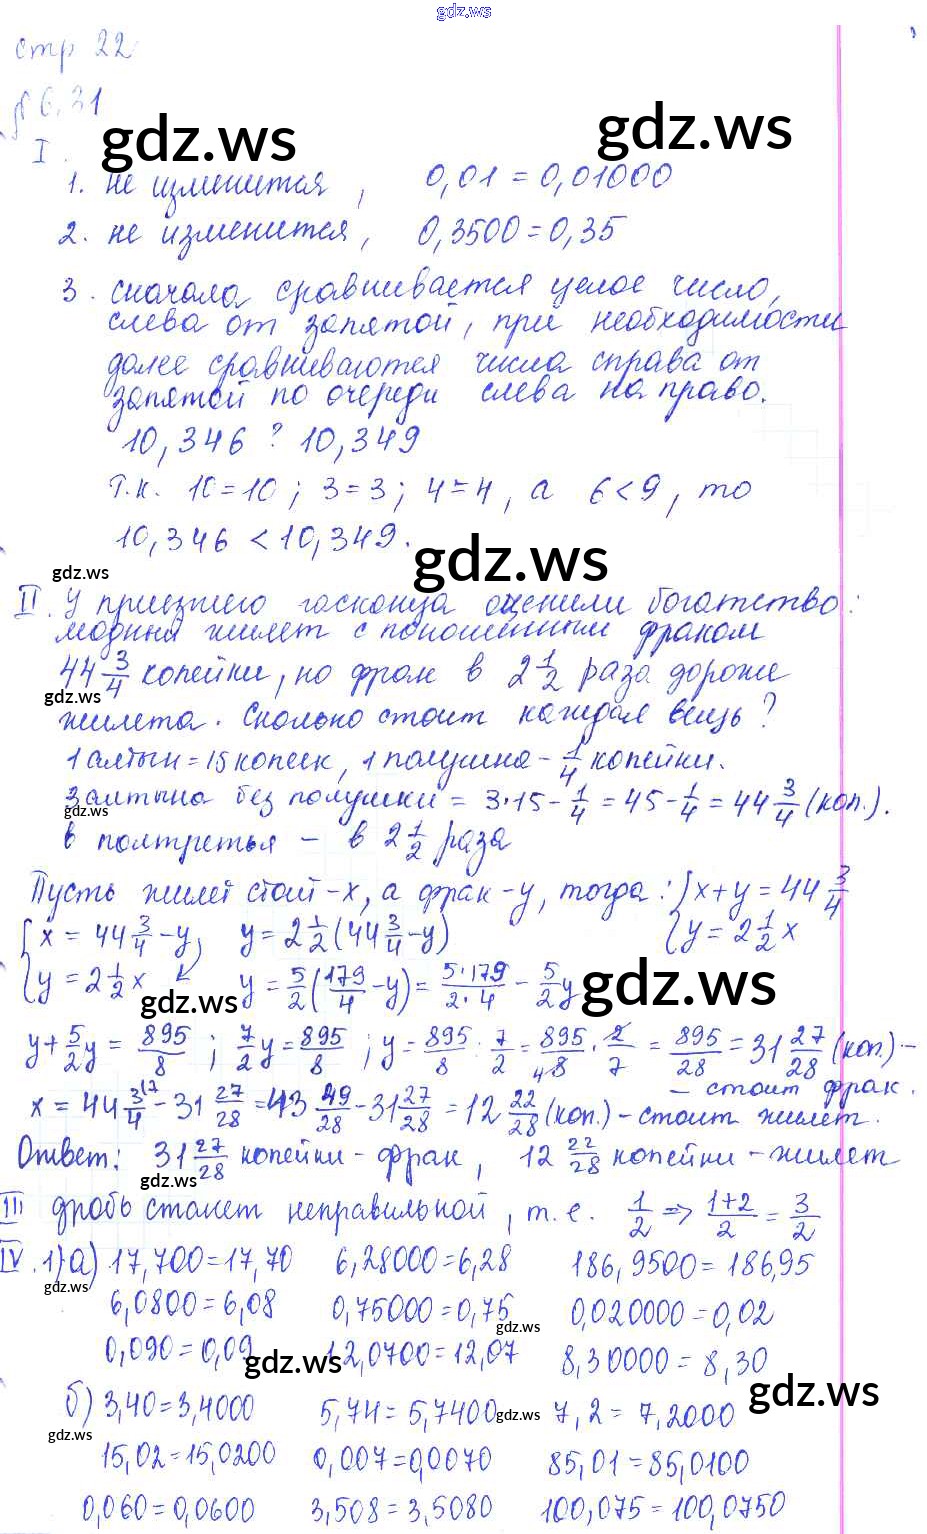 gdz.ws
стр 22
§ 6.31
gdz.ws gdz.ws
I.
1. не изменится, 0,01 = 0,01000
2. не изменится, 0,3500 = 0,35
3. сначала сравнивается целое число,
слева от запятой, при необходимости
далее сравниваются числа справа от
запятой по очереди слева на право.
10,346 ? 10,349
т.к. 10 = 10 ; 3 = 3 ; 4 = 4 , а 6 < 9 , то
10,346 < 10,349.
gdz.ws gdz.ws
II. У приезжего гасконца оценили богатство:
модный жилет с поношенным фраком
44 3/4 копейки, но фрак в 2 1/2 раза дороже
gdz.ws
жилета. Сколько стоит каждая вещь?
1 алтын = 15 копеек, 1 полушка - 1/4 копейки.
3 алтына без полушки = 3·15 - 1/4 = 45 - 1/4 = 44 3/4 (коп.).
gdz.ws
в полтретья – в 2 1/2 раза
Пусть жилет стоит - x, а фрак - y, тогда: { x + y = 44 3/4
{ x = 44 3/4 - y, y = 2 1/2 (44 3/4 - y) { y = 2 1/2 x
{ y = 2 1/2 x y = 5/2 (179/4 - y) = 5·179/2·4 - 5/2 y
gdz.ws gdz.ws
y + 5/2 y = 895/8 ; 7/2 y = 895/8 ; y = 895/8 : 7/2 = 895/8 · 2/7 = 895/28 = 31 27/28 (коп.) -
- стоит фрак.
x = 44 3/4 - 31 27/28 = 43 49/28 - 31 27/28 = 12 22/28 (коп.) - стоит жилет.
Ответ: 31 27/28 копейки - фрак, 12 22/28 копейки - жилет
gdz.ws
III дробь станет неправильной, т.е. 1/2 => 1+2/2 = 3/2
IV. 1) а) 17,700 = 17,70 6,28000 = 6,28 186,9500 = 186,95
gdz.ws
6,0800 = 6,08 0,75000 = 0,75 0,020000 = 0,02
gdz.ws
0,090 = 0,09 12,0700 = 12,07 8,30000 = 8,30
gdz.ws gdz.ws
б) 3,40 = 3,4000 5,74 = 5,7400 7,2 = 7,2000
gdz.ws gdz.ws
15,02 = 15,0200 0,007 = 0,0070 85,01 = 85,0100
0,060 = 0,0600 3,508 = 3,5080 100,075 = 100,0750